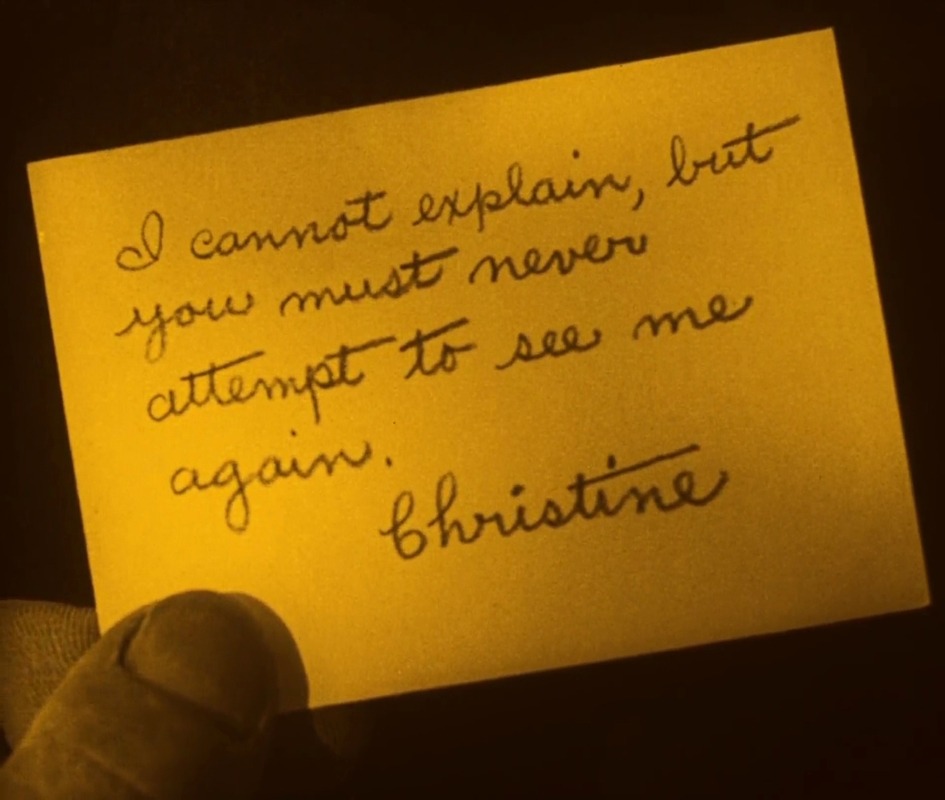 I cannot explain, but
you must never
attempt to see me
again.
Christine